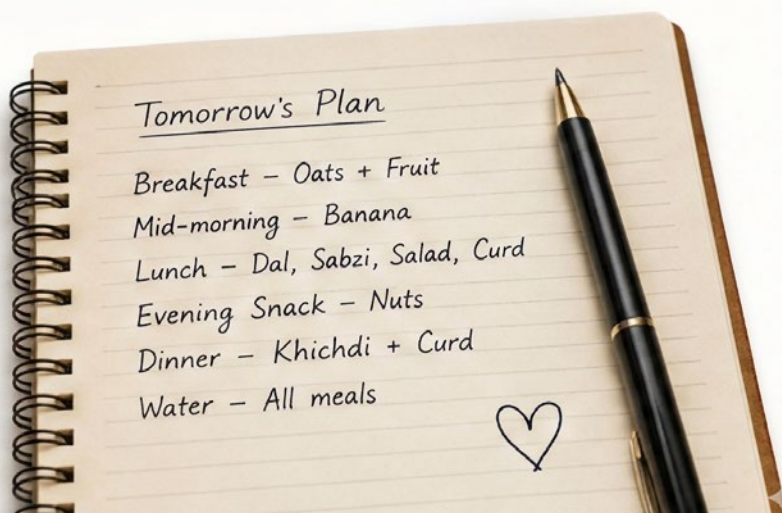 Tomorrow's Plan
Breakfast – Oats + Fruit
Mid-morning – Banana
Lunch – Dal, Sabzi, Salad, Curd
Evening Snack – Nuts
Dinner – Khichdi + Curd
Water – All meals